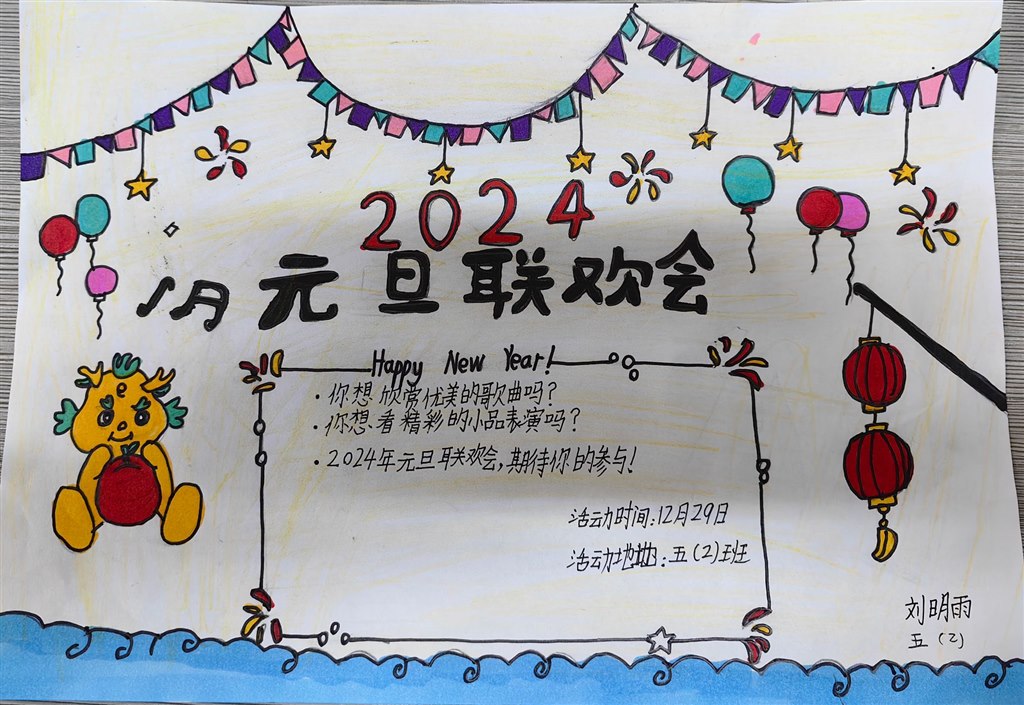 2024
元旦联欢会
Happy New Year!
·你想欣常优美的歌曲吗?
·你想看精彩的小品表演吗?
·2024年元旦联欢会,期待你的参与!
活动时间:12月29日
活动地:五(2)班
刘明雨
五(2)